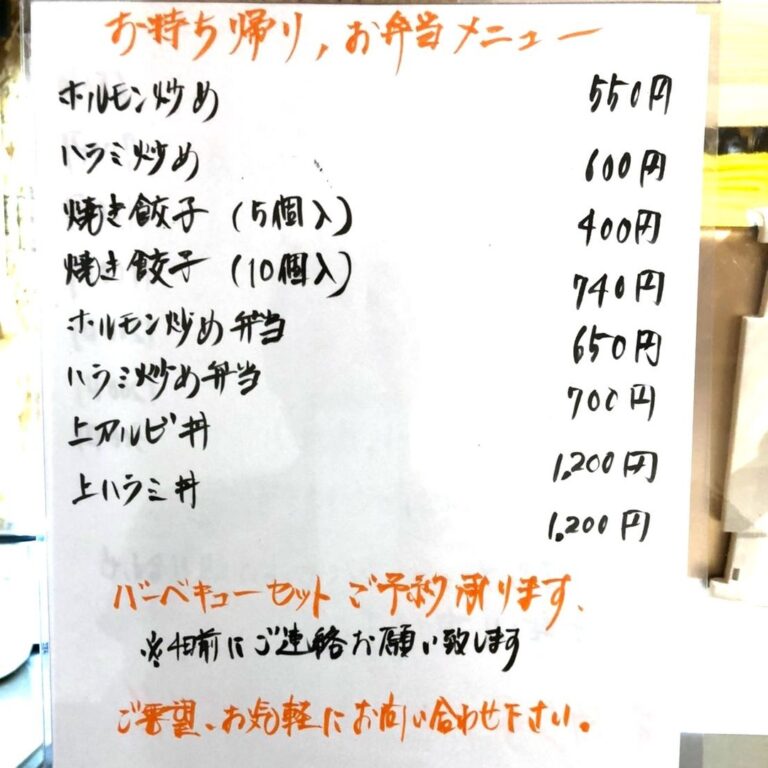 お持ち帰り,お弁当メニュー
ホルモン炒め 550円
ハラミ炒め 600円
焼き餃子(5個入) 400円
焼き餃子(10個入) 740円
ホルモン炒め弁当 650円
ハラミ炒め弁当 700円
上カルビ丼 1,200円
上ハラミ丼 1,200円
バーベキューセットご予約承ります、
※4日前にご連絡お願い致します
ご要望、お気軽にお問い合わせ下さい。